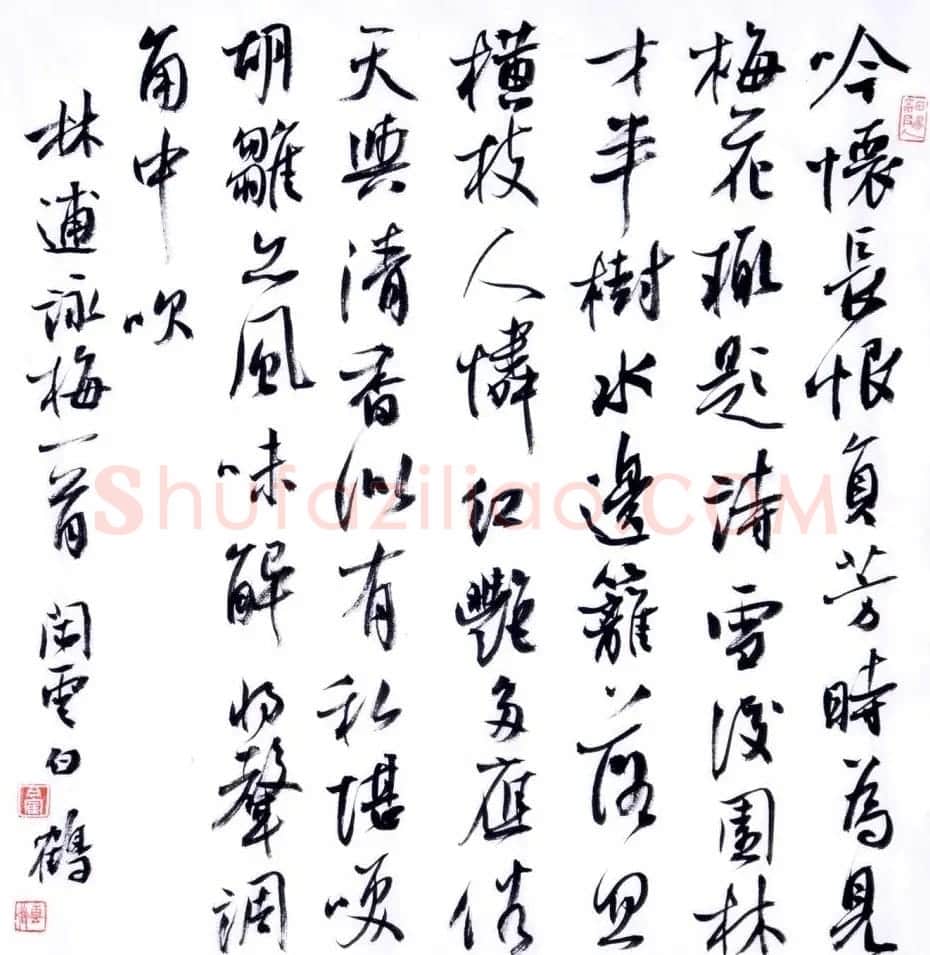 吟懷長恨負芳時為見
梅花輒是詩雪後園林
才半樹水邊籬落忽
橫枝人憐紅艷多應俗
天與清香似有私堪咲
胡雛亦風味解將聲調
角中吹
林逋詠梅一首 閑雲白鶴
Shufaziliao.COM